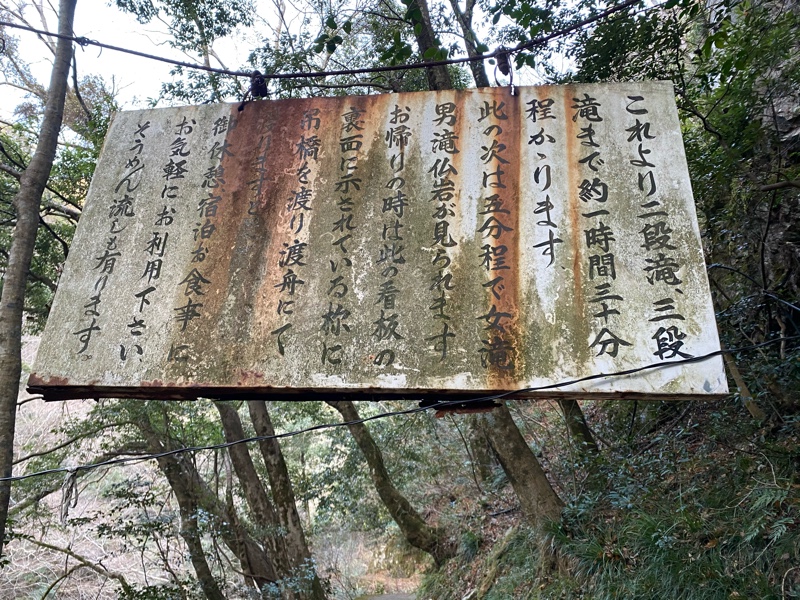 これより二段滝、三段
滝まで約一時間三十分
程かゝります
此の次は五分程で女滝
男滝仏岩が見られます
お帰りの時は此の看板の
裏面に示されている様に
吊橋を渡り渡舟にて
御休憩宿泊お食事に
お気軽にお利用下さい
そうめん流しも有ります